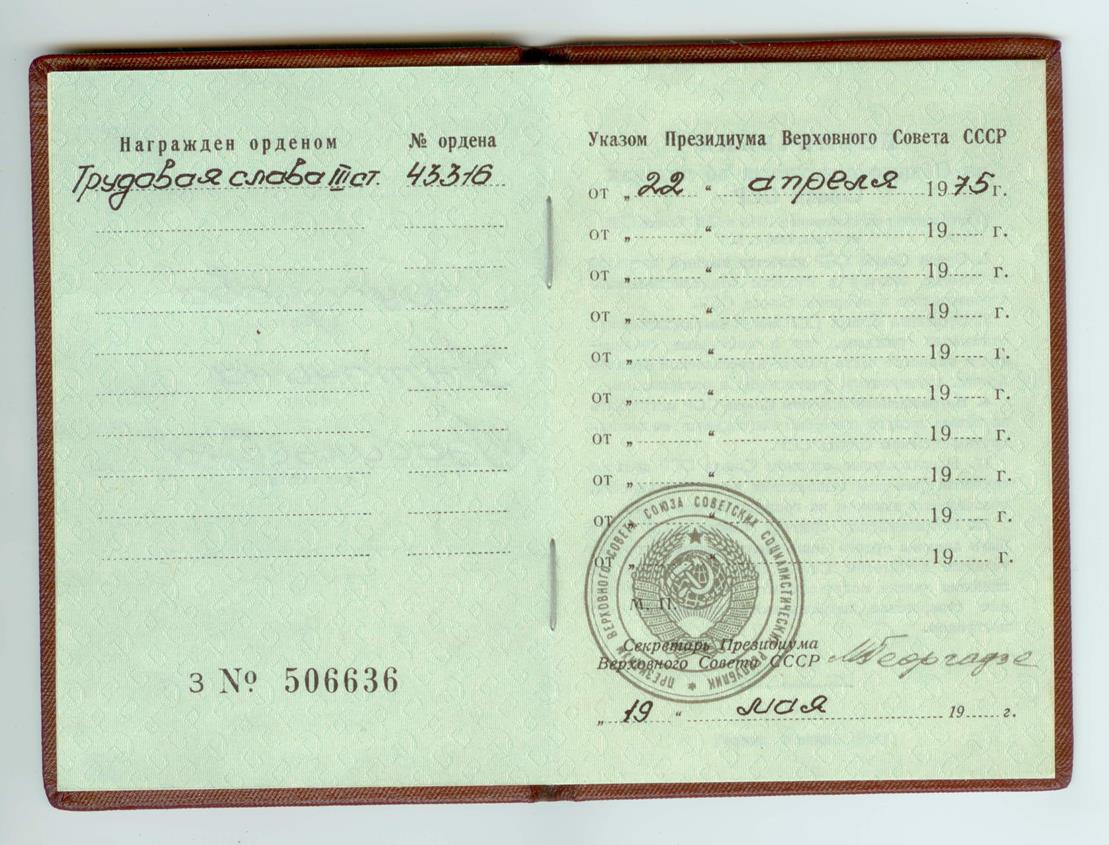 Награжден орденом № ордена
Трудовая слава III ст. 43316
З № 506636
Указом Президиума Верховного Совета СССР
от „22“ апреля 1975 г.
от „ “ 19 г.
от „ “ 19 г.
от „ “ 19 г.
от „ “ 19 г.
от „ “ 19 г.
от „ “ 19 г.
от „ “ 19 г.
от „ “ 19 г.
от „ “ 19 г.
ПРЕЗИДИУМ ВЕРХОВНОГО СОВЕТА СОЮЗА СОВЕТСКИХ СОЦИАЛИСТИЧЕСКИХ РЕСПУБЛИК
М. П.
Секретарь Президиума
Верховного Совета СССР МГеоргадзе
„19“ мая 19 г.